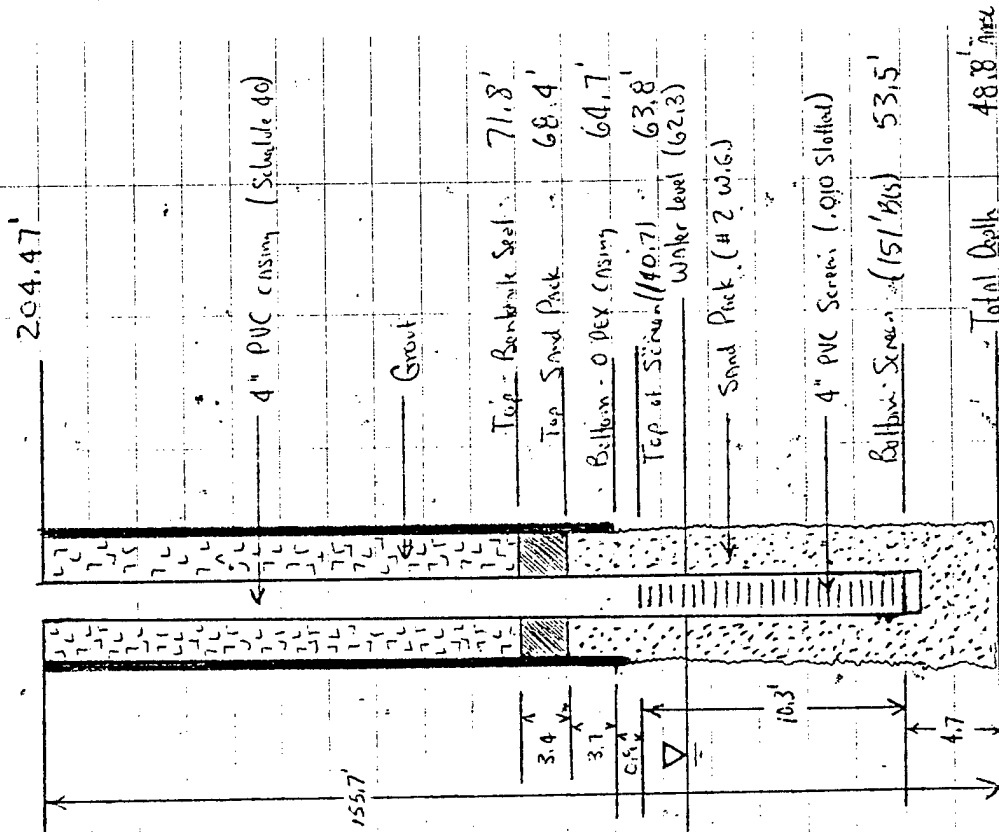 204.47'
4" PVC casing (Schedule 40)
Grout
Top - Bentonite Seal 71.8'
Top Sand Pack 68.4'
Bottom - ODEX casing 64.7'
Top of Screen (140.7) 63.8'
Water level (62.3)
Sand Pack (#2 W.G.)
4" PVC Screen (.010 Slotted)
Bottom - Screen (151' BLS) 53.5'
Total Depth 48.8'
155.7'
3.4
3.7
0.9
10.3'
4.7